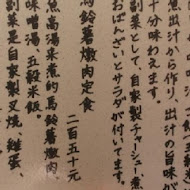 魚出汁から作り、出汁の旨味が
十分味わえます。
副菜として、自家製チャーシュー煮
おばんざいとサラダが付いてます。
馬鈴薯燉肉定食 二百五十元
魚高湯来煮的馬鈴薯燉肉
味噌湯、五穀米飯。
副菜是自家製叉焼、雞蛋、